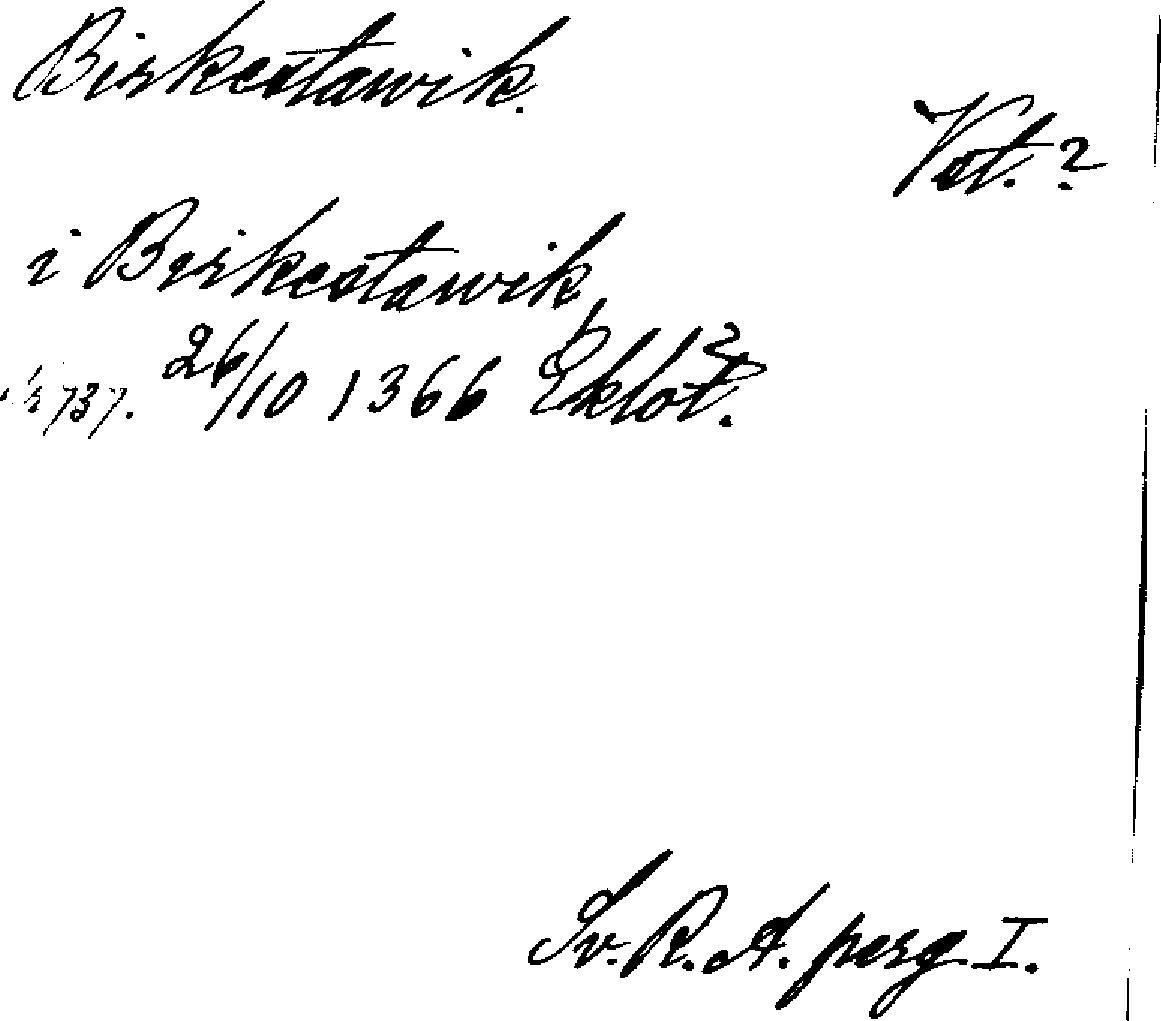 Birkestawik.
Vst. ?
i Birkestawik,
737. 26/10 1366 Eklöt.
Sv. R. A. perg I.